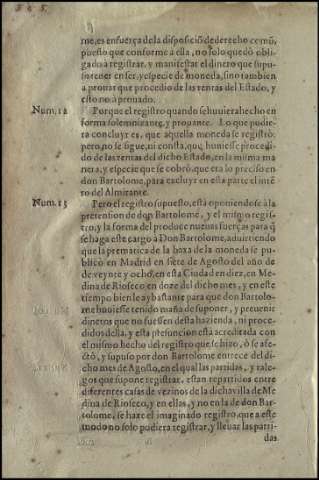 me, es en fuerça de la disposiciõ de derecho comũ,
puesto que conforme a ella, no solo quedò obli-
gado a registrar, y manifestar el dinero que supu-
so tener en ser, y especie de moneda, sino tambien
a prouar que procedio de las rentas del Estado, y
esto no à prouado.
Num. 12 Porque el registro quando se huuiera hecho en
forma solemnizante, y prouante. Lo que pudie-
ra concluyr es, que aquella moneda se registrò:
pero no se sigue, ni consta, que huuiesse procedi-
do de las rentas del dicho Estado, en la misma ma
nera, y especie que se cobrò, que era lo preciso en
don Bartolome, para excluyr en esta parte el inte
ro del Almirante.
Num. 13 Pero el registro supuesto, està oponiendose a la
pretension de don Bartolome, y el mismo regis-
tro, y la forma del produce nueuas fuerças para q̃
se haga este cargo à Don Bartolome, aduirtiendo
que la prematica de la baxa de la moneda se pu-
blicò en Madrid en siete de Agosto del año de
de veynte y ocho, en esta Ciudad en diez, en Me-
dina de Rioseco en doze del dicho mes, y en este
tiempo bien le ay bastante para que don Bartolo-
me huuiesse tenido maña de suponer, y preuenir
dineros que no fuessen desta hazienda, ni proce-
didos della, y esta presuncion està acreditada con
el mismo hecho del registro que se hizo, ò se afe-
ctò, y supuso por don Bartolome en treze del di-
cho mes de Agosto, en el qual las partidas, y tale-
gos que supone registrar, estan repartidos entre
diferentes casas de vezinos de la dicha villa de Me
dina de Rioseco, y en ellas, y no en la de don Bar-
tolome, se haze el imaginado registro que a este
modo no solo pudiera registrar, y lleuar las parti-
das